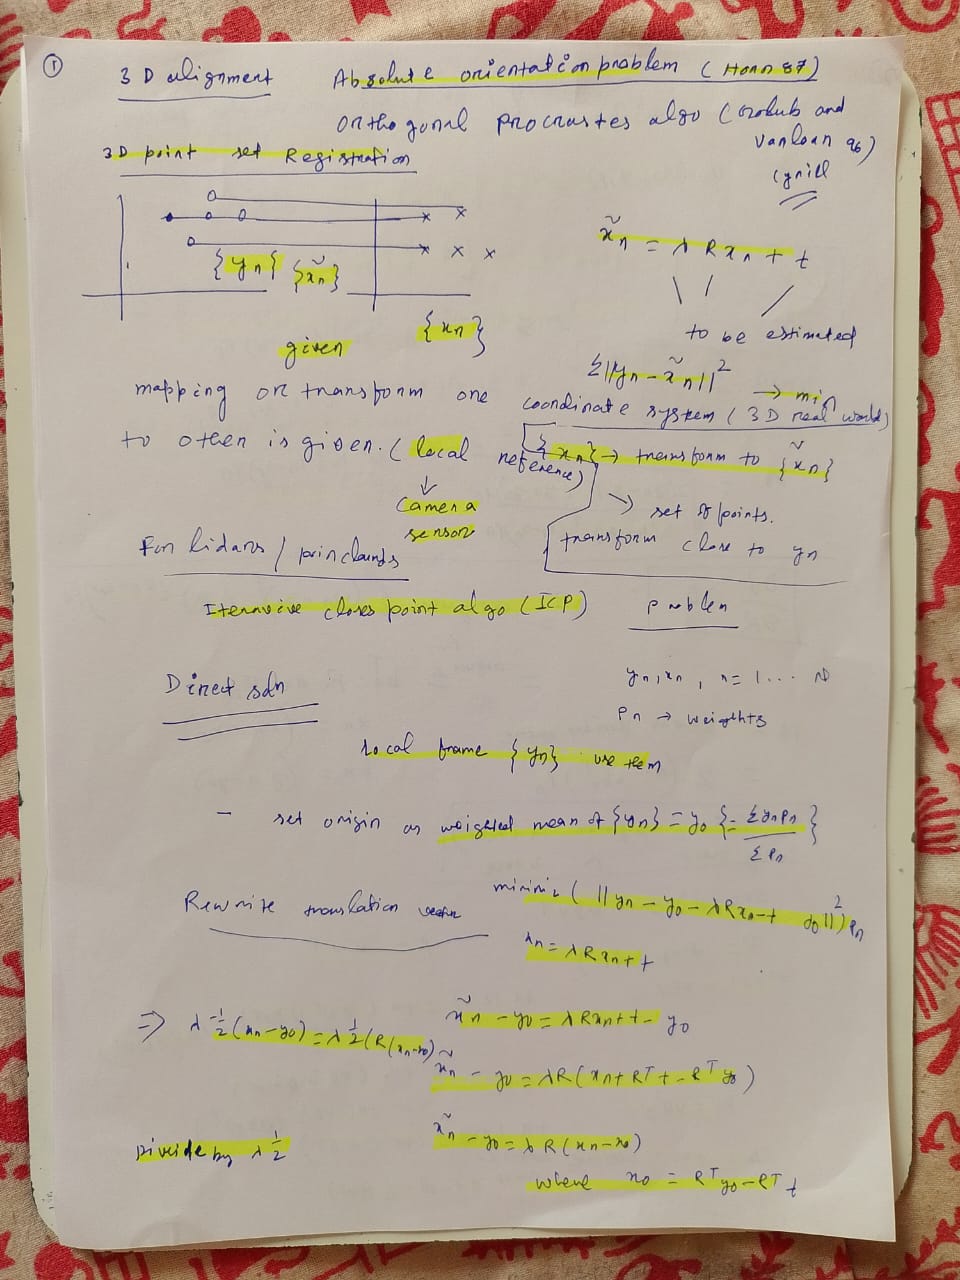 ①
3D alignment Absolute orientation problem (Horn 87)
Orthogonal procrustes algo (Golub and
Vanloan 96)
3D point set Registration
x̃n = λ R xn + t
{yn} {x̃n}
{xn}
to be estimated
given
Σ||yn - x̃n||² → min
mapping or transform one coordinate system (3D real world)
to other is given. (local reference) {xn} → transform to {x̃n}
↓
camera
sensor
→ set of points.
transform close to yn
For lidars /
Iterative closes point algo (ICP) Problem
Direct soln
yn, xn, n = 1 ... N
Pn → weights
local frame {yn} use them
- set origin as weighted mean of {yn} = y0 {= Σ yn Pn / Σ Pn}
Rewrite translation vector
minimiz (|| yn - y0 - λRxn - t y0 ||²) Pn
x̃n = λRxn + t
x̃n - y0 = λRxn + t - y0
⇒ λ^-1/2 (xn - y0) = λ^1/2 (R(xn - x0)
x̃n - y0 = λR(xn + RT t - RT y0)
Divide by λ^1/2
x̃n - y0 = λ R (xn - x0)
where x0 = RT y0 - RT t